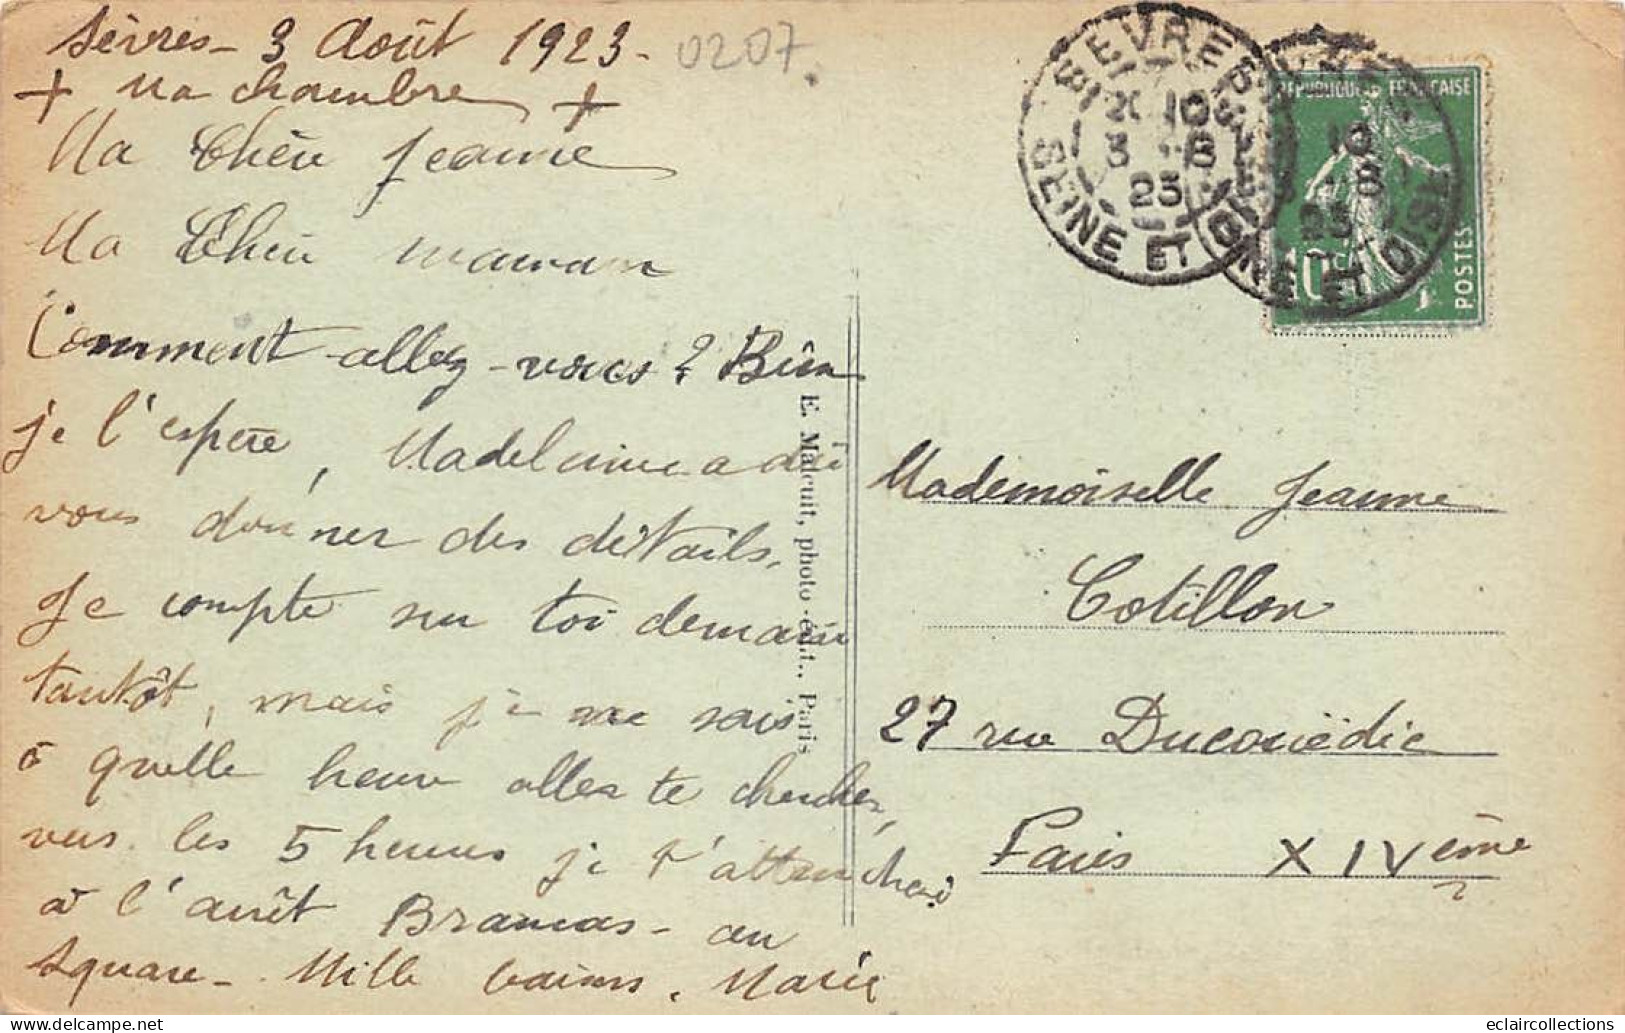 Sèvres - 3 Août 1923 - 0207.
+ Ma chambre +
Ma Chère Jeanne
Ma Chère maman
Comment allez-vous ? Bien
je l'espère, Madeleine a dû
vous donner des détails.
Je compte sur toi demain
tantôt, mais je ne sais
à quelle heure aller te chercher,
vers les 5 heures je t'attendrai
à l'arrêt Brancas - au
square - Mille baisers. Marie
E. Malcuit, photo-édit., Paris
SEVRES
10
3 8
23
SEINE ET OISE
10
8
23
ET OISE
REPUBLIQUE FRANCAISE
10c
POSTES
Mademoiselle Jeanne
Cotillon
27 rue Ducouëdic
Paris XIVème
eclaircollections
www.delcampe.net